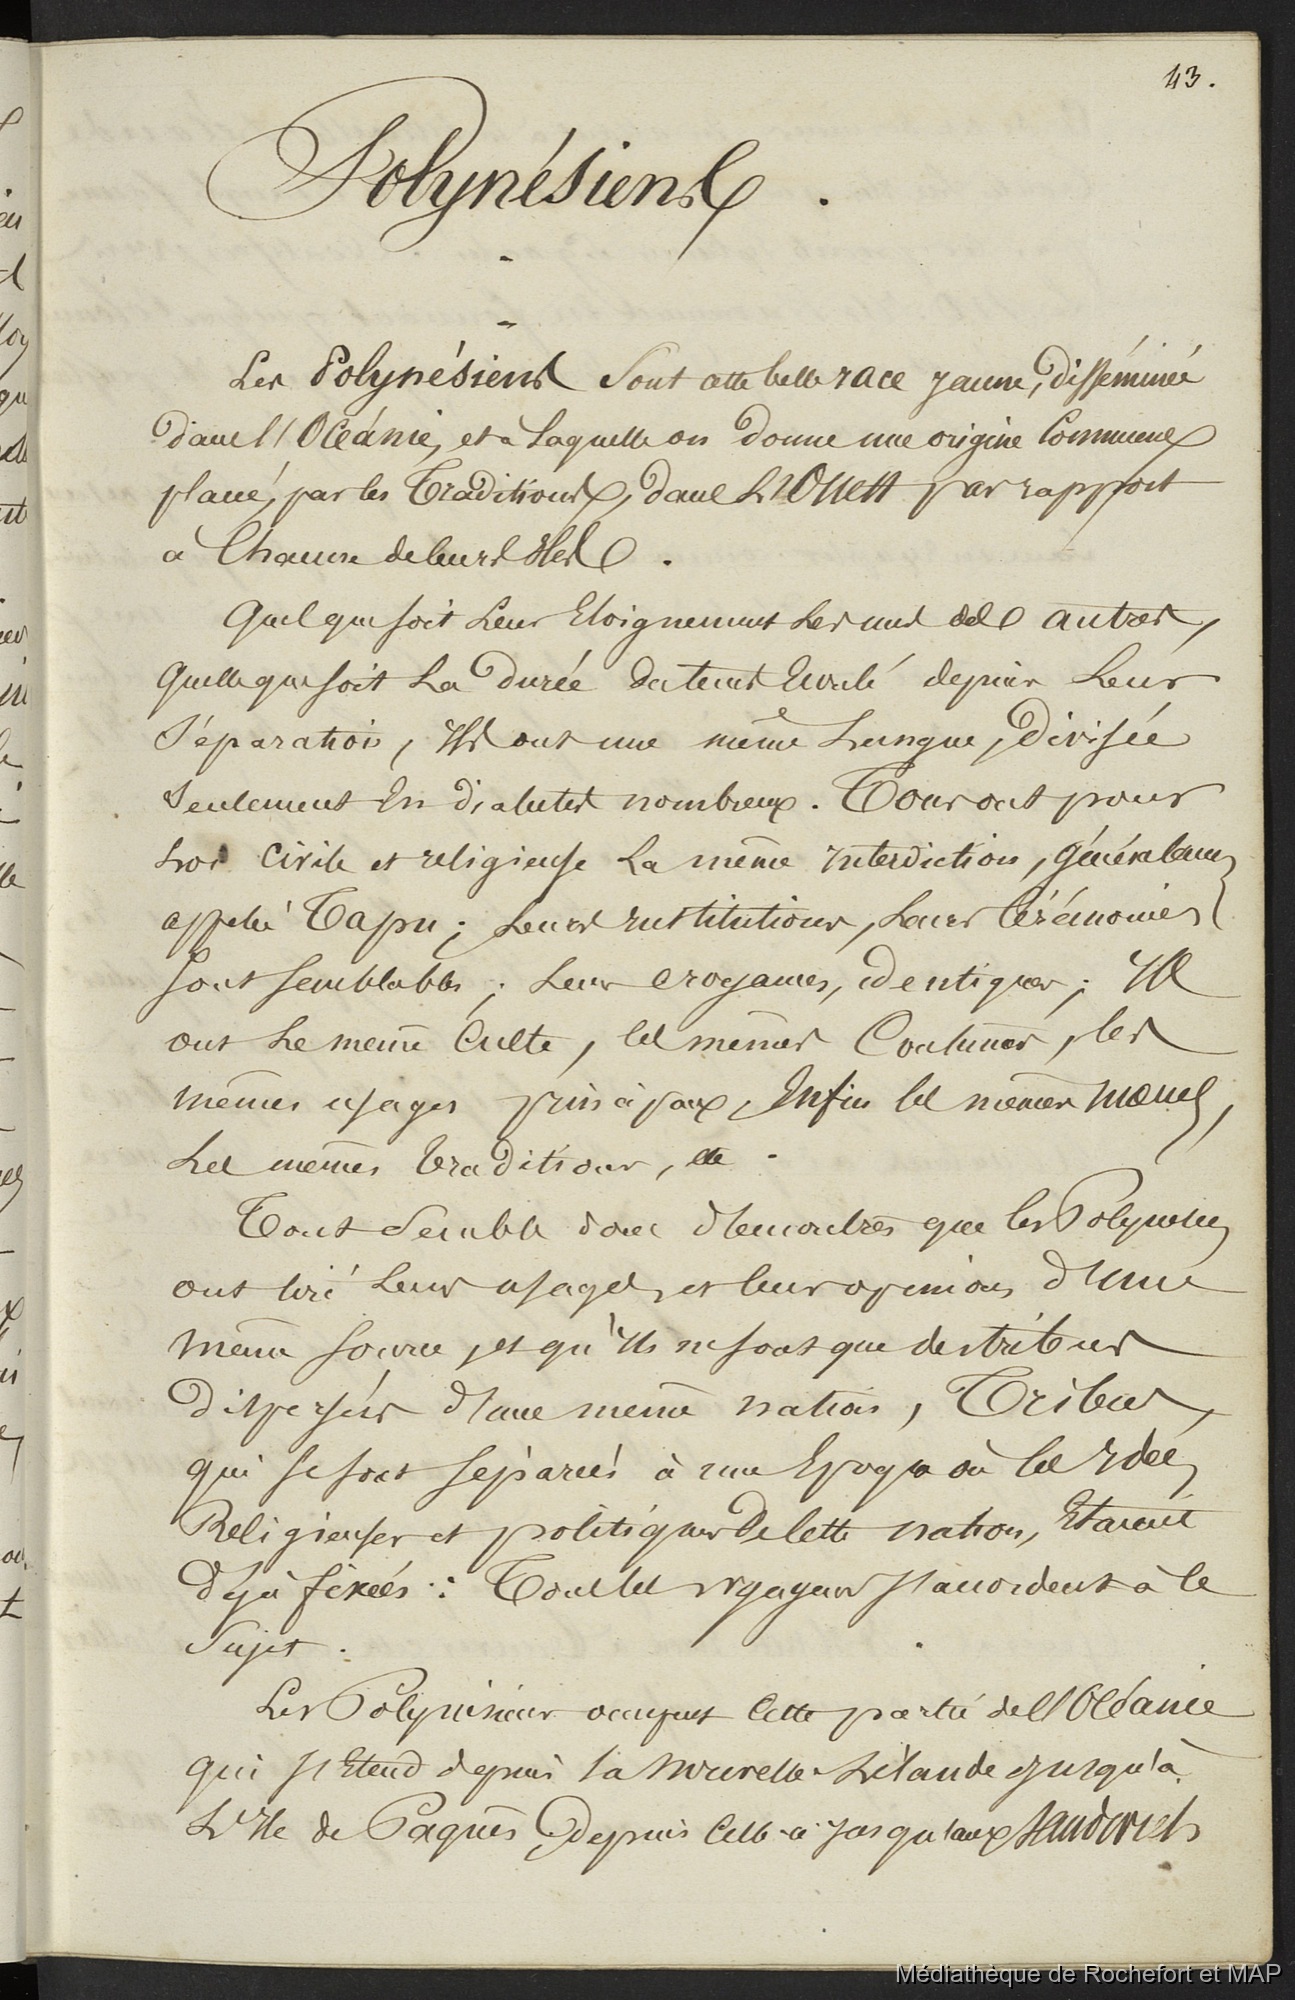 43.
Polynésiens.
Les Polynésiens sont cette belle race jaune, disséminée
dans l'Océanie, et à laquelle on donne une origine Commune
placée, par les Traditions, dans L'Ouest par rapport
à Chacune de leurs Iles.
Quel que soit Leur Eloignement Les uns des autres,
quelle que soit La Durée du tems Ecoulé depuis Leur
Séparation, Ils ont une même Langue, Divisée
seulement En dialectes nombreux. Tous ont pour
Loi civile et religieuse La même Interdiction, généralement
appelée Tapu; Leurs Institutions, Leurs Cérémonies
sont semblables; Leurs croyances, identiques; Ils
ont Le même Culte, les mêmes Coutumes, les
mêmes usages principaux, Enfin les mêmes mœurs,
Les mêmes Traditions, etc.
Tout Semble donc démontrer que les Polynésiens
ont tiré Leurs usages, et leurs opinions d'une
même source, et qu'Ils ne sont que des tribus
Dispersées d'une même nation, Tribus,
qui se sont séparées à une Epoque où les Idées
Religieuses et politiques De Cette nation, Etaient
Déjà fixées: Tous les voyageurs s'accordent à ce
Sujet.
Les Polynésiens occupent Cette partie de l'Océanie
qui s'Etend depuis la Nouvelle-Zélande jusqu'à
L'Ile de Paques, Depuis Celle-ci jusqu'aux Sandwich
Médiathèque de Rochefort et MAP